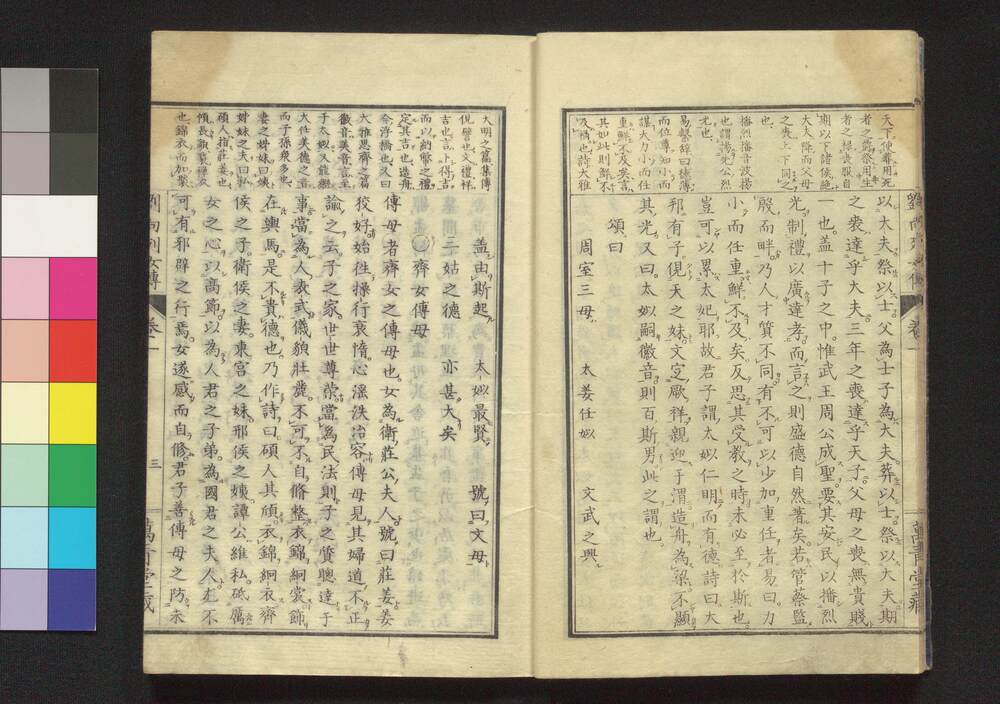 天下使葬用死
者之爵祭用生
者之祿喪服自
期以下諸侯絶
大夫降而父母
之喪上下同之
也
播烈播音波揚
也謂揚先公烈
光也
易繫辭曰德薄
而位尊知小而
謀大力小而任
重鮮不及矣言
其如此則鮮不
及禍也詩大雅
以大夫祭以士父為士子為大夫葬以士祭以大夫期
之喪達乎大夫三年之喪達乎天子父母之喪無貴賤
一也蓋十子之中惟武王周公成聖要其安民以播烈
光制禮以廣達孝而言之則盛德自然著矣若管蔡監
殷而畔乃人才質不同有不可以少加重任者易曰力
小而任重鮮不及矣反思其受教之時未必至於斯也
豈可以累太姒耶故君子謂太姒仁明而有德詩曰大
邦有子俔天之妹文定厥祥親迎于渭造舟為梁不顯
其光又曰太姒嗣徽音則百斯男此之謂也
頌曰
周室三母 太姜任姒 文武之興
大明之篇集傳
俔譬也文禮祥
吉也言卜得吉
而以納幣之禮
定其吉也造舟
今浮橋也又曰
大雅思齊之篇
徽音美音言至
于太姒又能繼
大任美德之音
而子孫衆多也
妻之姊妹曰姨
姊妹之夫曰私
碩人指莊姜也
頎長貌褧禪衣
也錦衣而加褧
蓋由斯起 太姒最賢 號曰文母
三姑之德 亦甚大矣
齊女傅母
傅母者齊女之傅母也女為衛莊公夫人號曰莊姜姜
姣好始往操行衰惰心淫泆冶容傅母見其婦道不正
諭之云子之家世世尊榮當為民法則子之質聰達于
事當為人表式儀貌壯麗不可不自脩整衣錦絅裳飾
在輿馬是不貴德也乃作詩曰碩人其頎衣錦絅衣齊
侯之子衛侯之妻東宮之妹邢侯之姨譚公維私砥厲
女之心以高節以為人君之子弟為國君之夫人尤不
可有邪僻之行焉女遂感而自修君子善傅母之防未
劉向列女傳 卷一 三 萬青堂藏